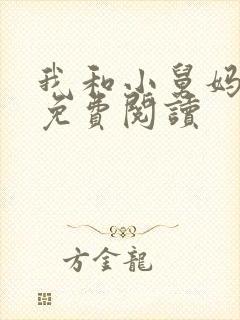 我和小舅妈
免費閱讀
方金龍